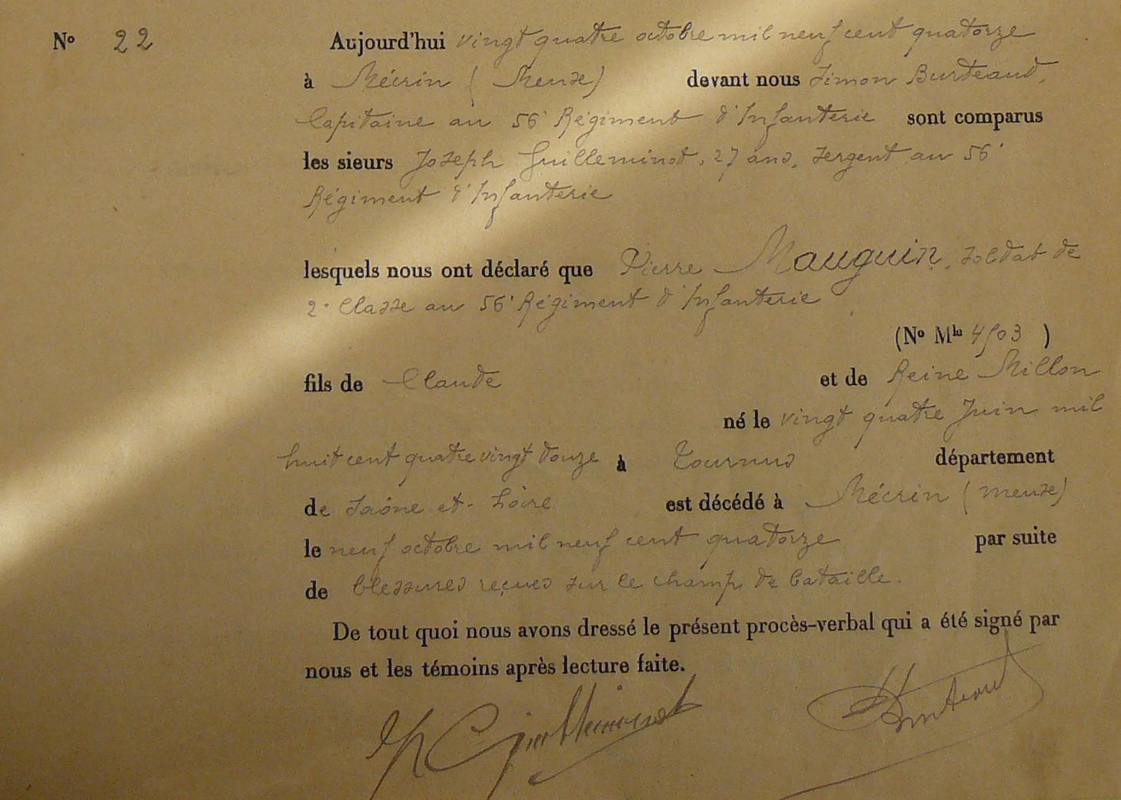 N° 22 Aujourd'hui vingt quatre octobre mil neuf cent quatorze
à Mécrin (Meuse) devant nous Simon Burteaud,
Capitaine au 56e Régiment d'Infanterie sont comparus
les sieurs Joseph Guilleminot, 27 ans, Sergent au 56e
Régiment d'Infanterie
lesquels nous ont déclaré que Pierre Mauguin, soldat de
2e Classe au 56e Régiment d'Infanterie
(N° Mle 4503 )
fils de Claude et de Reine Millon
né le vingt quatre Juin mil
huit cent quatre vingt douze à Tournus département
de Saône et-Loire est décédé à Mécrin (Meuse)
le neuf octobre mil neuf cent quatorze par suite
de blessures reçues sur le champ de bataille.
De tout quoi nous avons dressé le présent procès-verbal qui a été signé par
nous et les témoins après lecture faite.
Guilleminot Burteaud